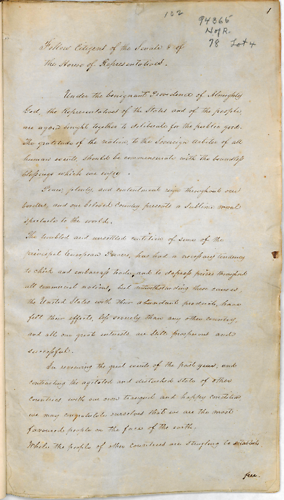 122
94365
H of R.
78 Lot 4
1
Fellow Citizens of the Senate & of
the House of Representatives.
Under the benignant Providence of Almighty
God, the Representatives of the States and of the people,
are again brought together to deliberate for the public good.
The gratitude of the nation to the Sovereign Arbiter of all
human events should be commensurate with the boundless
blessings which we enjoy.
Peace, plenty and contentment reign throughout our
borders, and our beloved Country presents a sublime moral
spectacle to the world.
The troubled and unsettled condition of some of the
principal European Powers, has had a necessary tendency
to check and embarrass trade, and to depress prices throughout
all commercial nations, but notwithstanding these causes,
the United States with their abundant products, have
felt their effects, less severely than any other country,
and all our great interests are still prosperous and
successful.
In reviewing the great events of the past year, and
contrasting the agitated and disturbed state of other
Countries with our own tranquil and happy condition
we may congratulate ourselves that we are the most
favoured people on the face of the earth.
While the people of other countries are struggling to establish
free